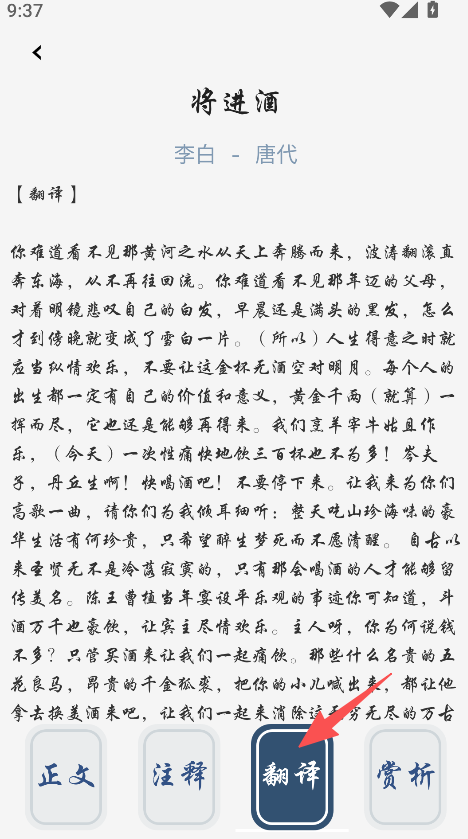 9:37
将进酒
李白 - 唐代
【翻译】
你难道看不见那黄河之水从天上奔腾而来，波涛翻滚直
奔东海，从不再往回流。你难道看不见那年迈的父母，
对着明镜悲叹自己的白发，早晨还是满头的黑发，怎么
才到傍晚就变成了雪白一片。（所以）人生得意之时就
应当纵情欢乐，不要让这金杯无酒空对明月。每个人的
出生都一定有自己的价值和意义，黄金千两（就算）一
挥而尽，它也还是能够再得来。我们烹羊宰牛姑且作
乐，（今天）一次性痛快地饮三百杯也不为多！岑夫
子，丹丘生啊！快喝酒吧！不要停下来。让我来为你们
高歌一曲，请你们为我倾耳细听：整天吃山珍海味的豪
华生活有何珍贵，只希望醉生梦死而不愿清醒。自古以
来圣贤无不是冷落寂寞的，只有那会喝酒的人才能够留
传美名。陈王曹植当年宴设平乐观的事迹你可知道，斗
酒万千也豪饮，让宾主尽情欢乐。主人呀，你为何说钱
不多？只管买酒来让我们一起痛饮。那些什么名贵的五
花良马，昂贵的千金狐裘，把你的小儿喊出来，都让他
拿去换美酒来吧，让我们一起来消除这无穷无尽的万古
正文
注释
翻译
赏析